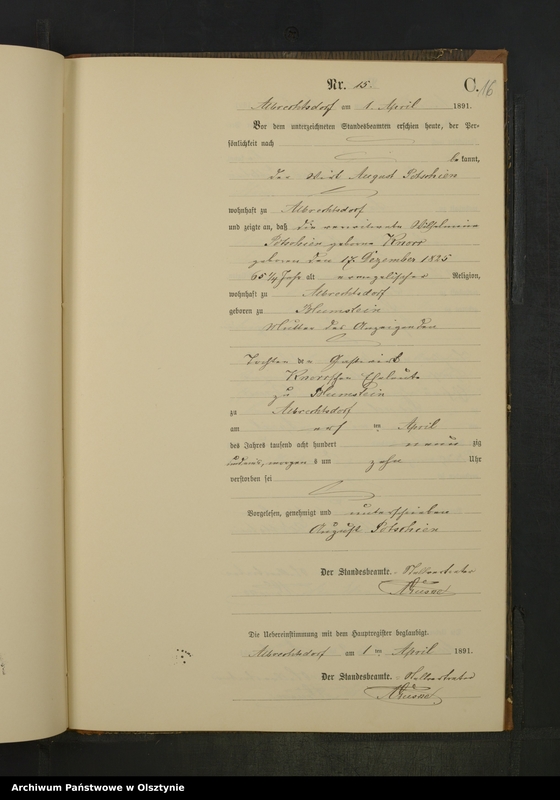 Nr. 15.
C. 16
Albrechtsdorf am 1. April 1891.
Vor dem unterzeichneten Standesbeamten erschien heute, der Per-
sönlichkeit nach
bekannt,
der Wirt August Pötschien
wohnhaft zu Albrechtsdorf
und zeigte an, daß die verwittwete Wilhelmine
Pötschien geborne Knorr
geboren den 17. Dezember 1825
65 1/4 Jahr alt evangelischer Religion,
wohnhaft zu Albrechtsdorf
geboren zu
Mutter des Anzeigenden
Tochter der Gastwirt
Knorrschen Eheleute
zu
zu Albrechtsdorf
am ten April
des Jahres tausend acht hundert neunzig
und eins, morgens um zehn Uhr
verstorben sei
Vorgelesen, genehmigt und unterschrieben
August Pötschien
Der Standesbeamte.
Die Uebereinstimmung mit dem Hauptregister beglaubigt.
Albrechtsdorf am 1ten April 1891.
Der Standesbeamte.
Archiwum Państwowe w Olsztynie